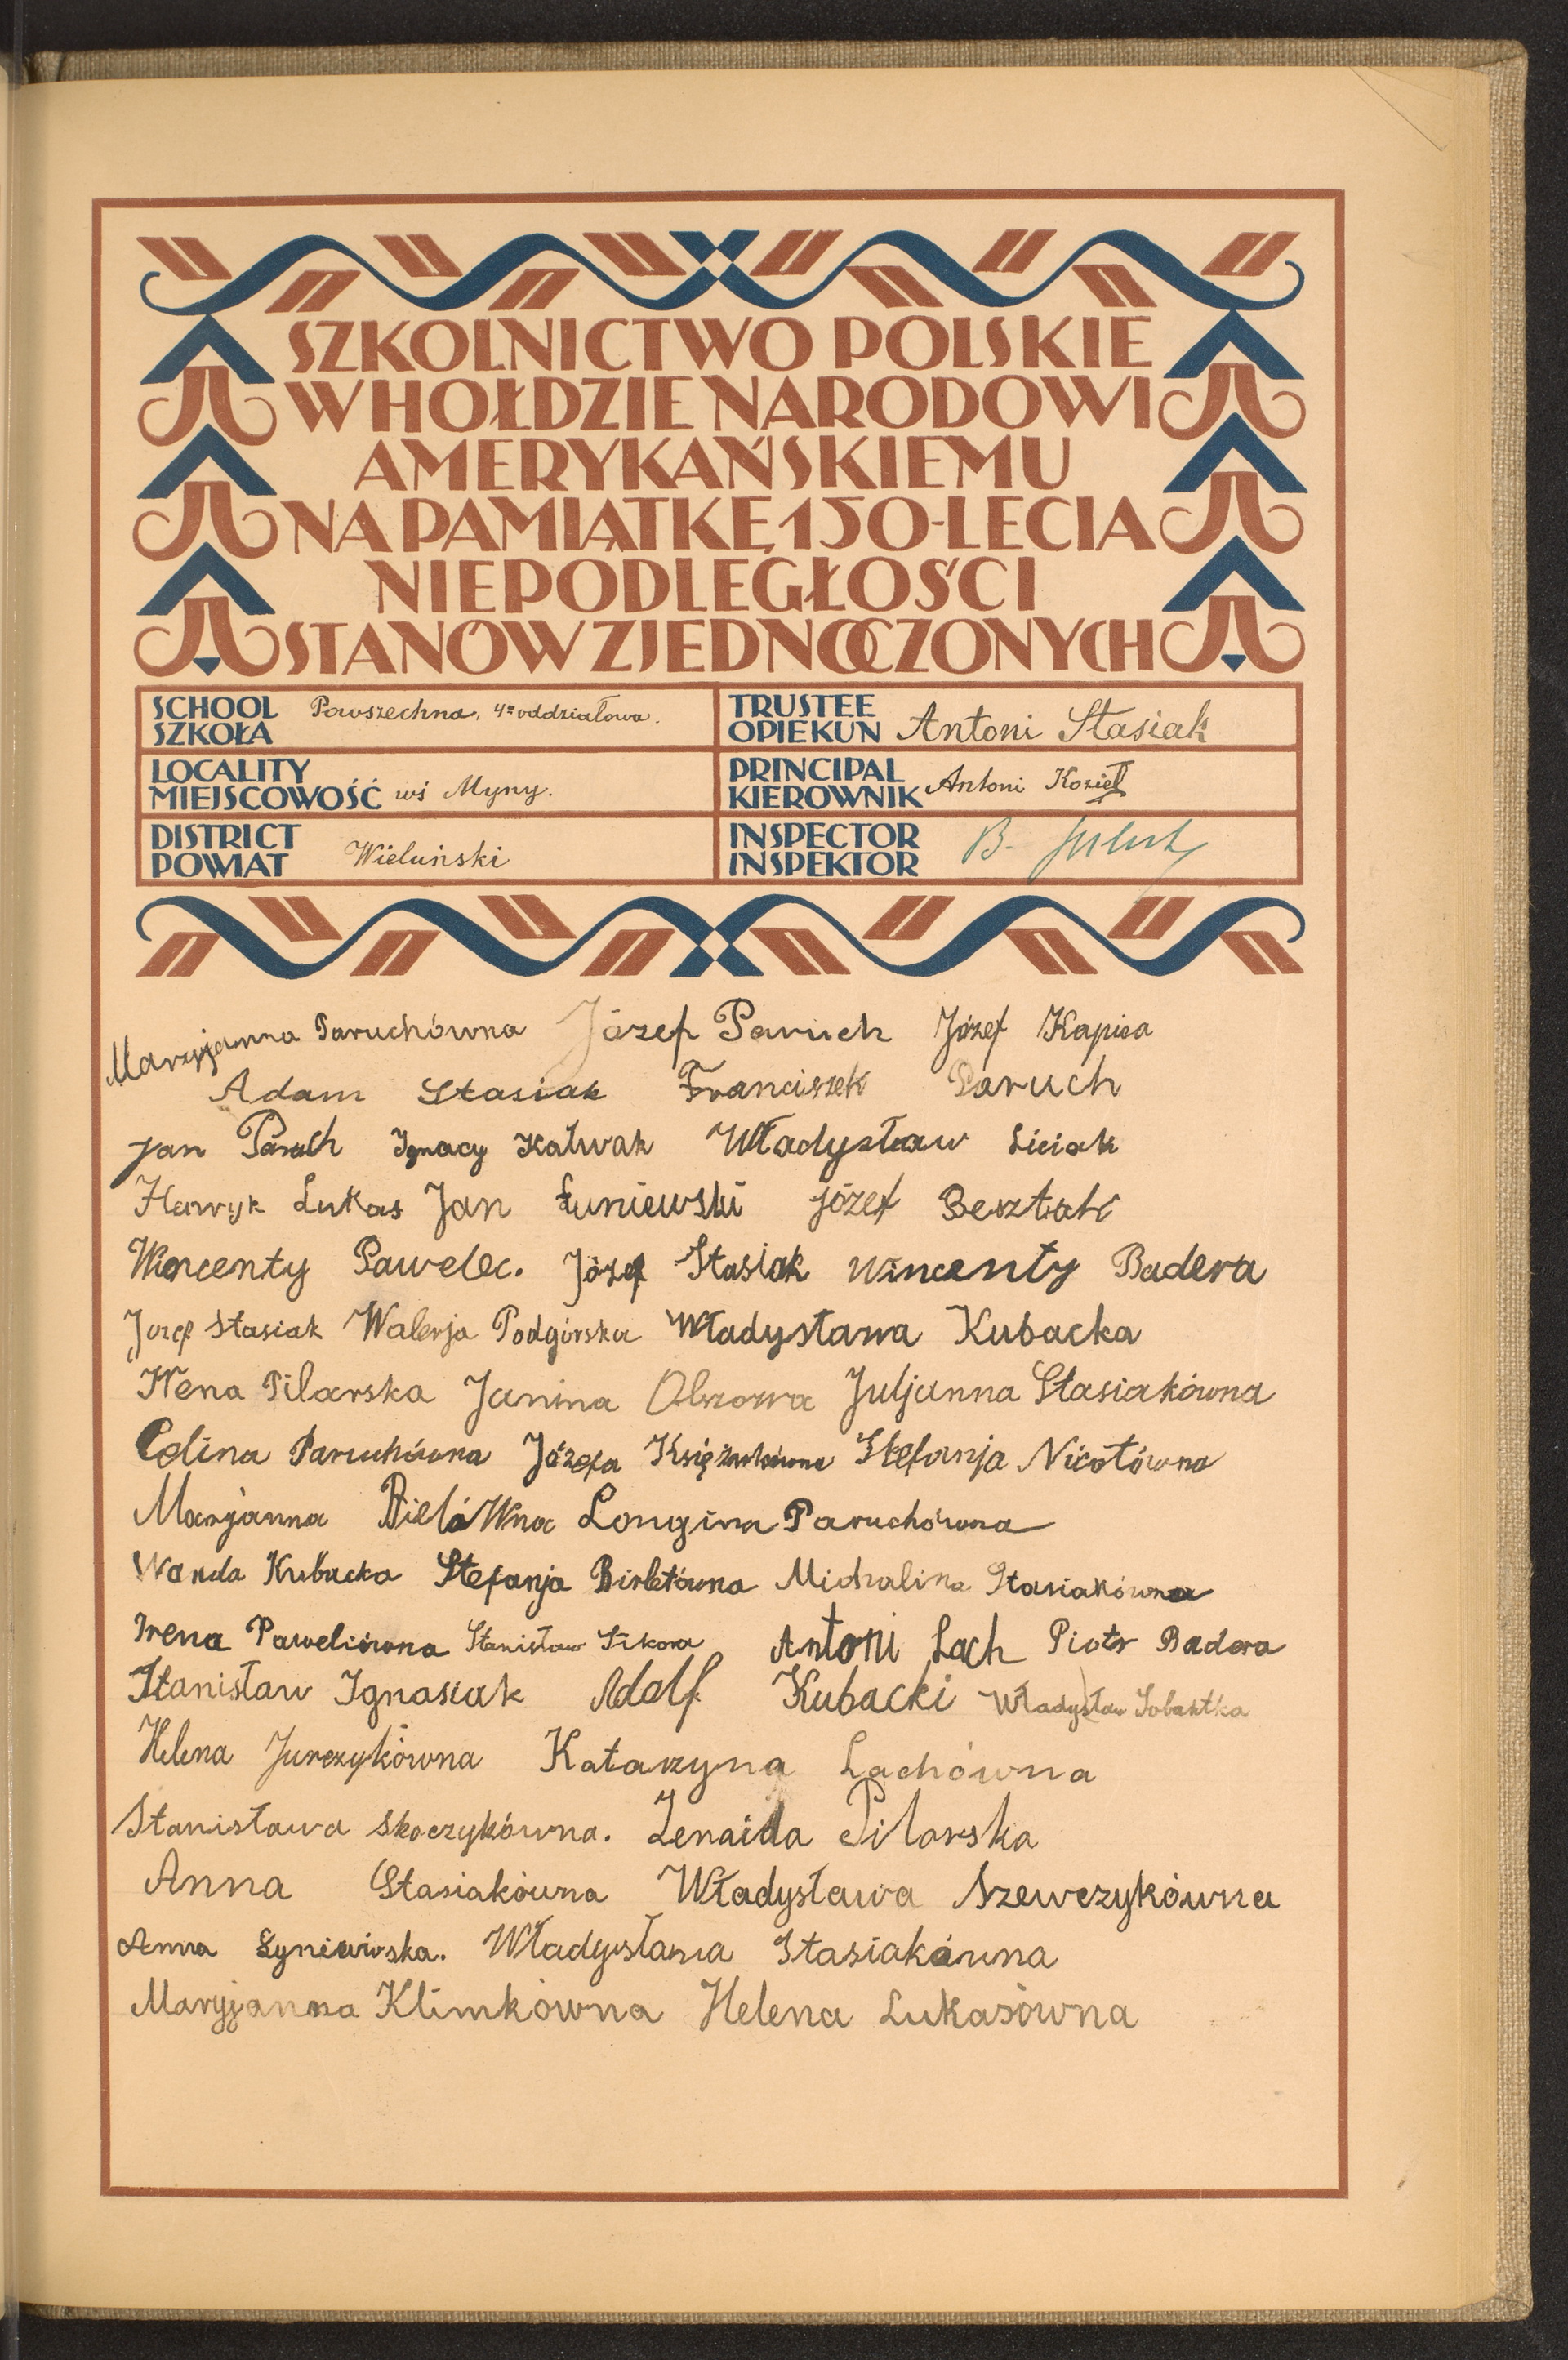 SZKOLNICTWO POLSKIE
W HOŁDZIE NARODOWI
AMERYKAŃSKIEMU
NA PAMIĄTKĘ 150-LECIA
NIEPODLEGŁOŚCI
STANÓW ZJEDNOCZONYCH
SCHOOL SZKOŁA Powszechna, 4-oddziałowa.
TRUSTEE OPIEKUN Antoni Stasiak
LOCALITY MIEJSCOWOŚĆ wś Myny.
PRINCIPAL KIEROWNIK Antoni Kozieł
DISTRICT POWIAT Wieluński
INSPECTOR INSPEKTOR B.
Maryjanna Paruchówna Józef Paruch Józef Kapica
Adam Stasiak Franciszek Paruch
Jan Paruch Ignacy Kałwak Władysław Siciak
Henryk Lukas Jan Łuniewski Józef Besztak
Wincenty Pawelec. Józef Stasiak Wincenty Badera
Józef Stasiak Walerja Podgórska Władysława Kubacka
Irena Pilarska Janina Juljanna Stasiakówna
Celina Paruchówna Józefa Stefanja Nicotówna
Marjanna Bielówna Longina Paruchówna
Wanda Kubacka Stefanja Birletówna Michalina Stasiakówna
Irena Pawelcówna Stanisław Sikora Antoni Lach Piotr Badera
Stanisław Ignasiak Adolf Kubacki Władysław
Helena Jurczykówna Katarzyna Lachówna
Stanisława Skoczykówna. Zenaida Pilarska
Anna Stasiakówna Władysława Szewczykówna
Anna Łyniewska. Władysława Stasiakówna
Maryjanna Klimkówna Helena Lukasówna